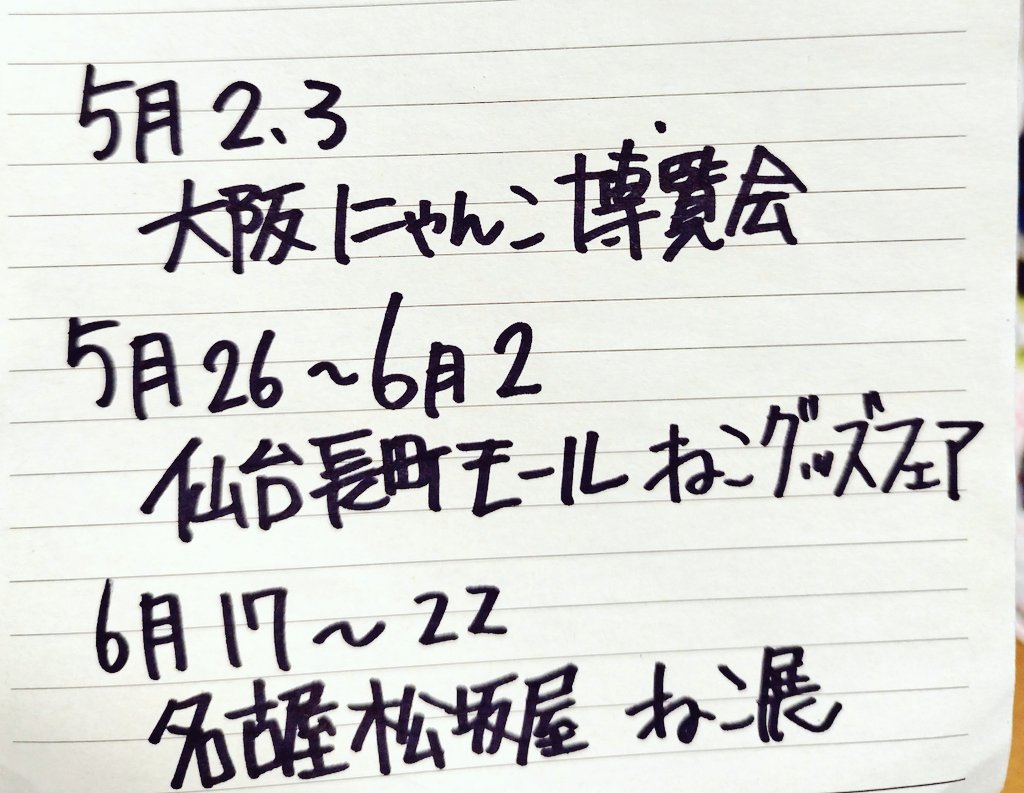 5月2、3
大阪にゃんこ博覧会
5月26~6月2
仙台長町モール ねこグッズフェア
6月17~22
名古屋松坂屋 ねこ展